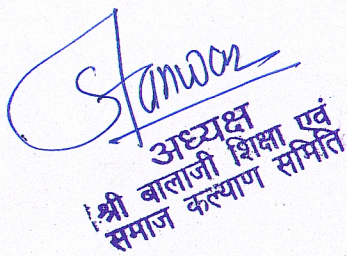 STanwar
अध्यक्ष
श्री बालाजी शिक्षा एवं
समाज कल्याण समिति